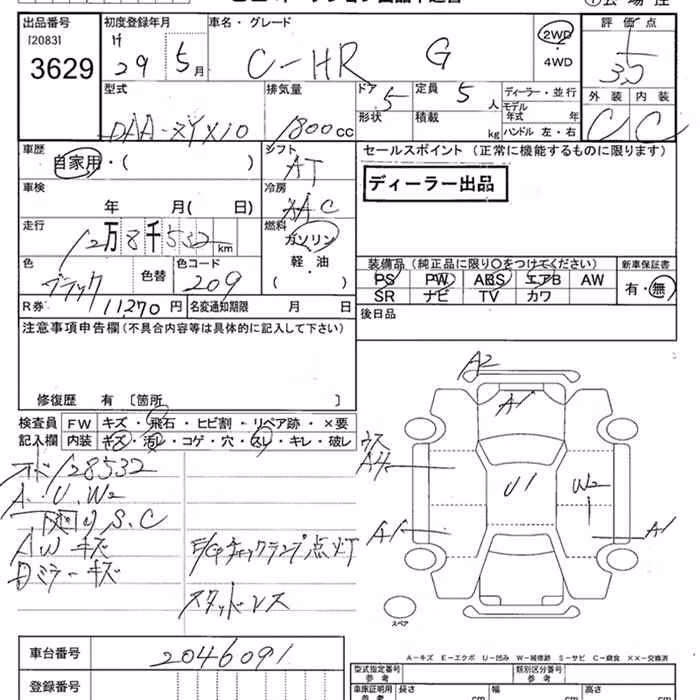 出品番号 初度登録年月 車名・グレード 評価点
[2083] H
3629 29 5月 C-HR G 2WD ・ 4WD 3.5
型式 排気量 ドア 5 定員 5人 ディーラー・並行 外装 内装
DAA-ZYX10 1800cc 形状 積載 kg モデル年式 年 C C
ハンドル 左・右
車歴 シフト セールスポイント(正常に機能するものに限ります)
自家用・( ) AT
車検 冷房 ディーラー出品
年 月( 日) AAC
走行 燃料
12万8千532km ガソリン 装備品(純正品に限り○をつけてください) 新車保証書
色 色替 色コード 軽・油 PS PW ABS エアB AW 有・無
ブラック 209 ( ) SR ナビ TV カワ
R券 11,270円 名変通知期限 月 日 後日品
注意事項申告欄(不具合内容等は具体的に記入して下さい)
修復歴 有〔箇所 〕
検査員 FW キズ・飛石・ヒビ割・リペア跡・×要
記入欄 内装 キズ・汚レ・コゲ・穴・スレ・キレ・破レ
A2
A1
128532
A.U.W2
S.C
AWキズ
ドミラーキズ
E/Gチェックランプ点灯
スタッドレス
ウス
A4
U1
W2
A1
A1
スペア
A-キズ E-エクボ U-凹み W-補修跡 S-サビ C-腐食 ××-交換済
車台番号 2046091 型式指定番号 参考 類別区分番号 参考
登録番号 車庫証明用 参考 長さ cm 幅 cm 高さ cm